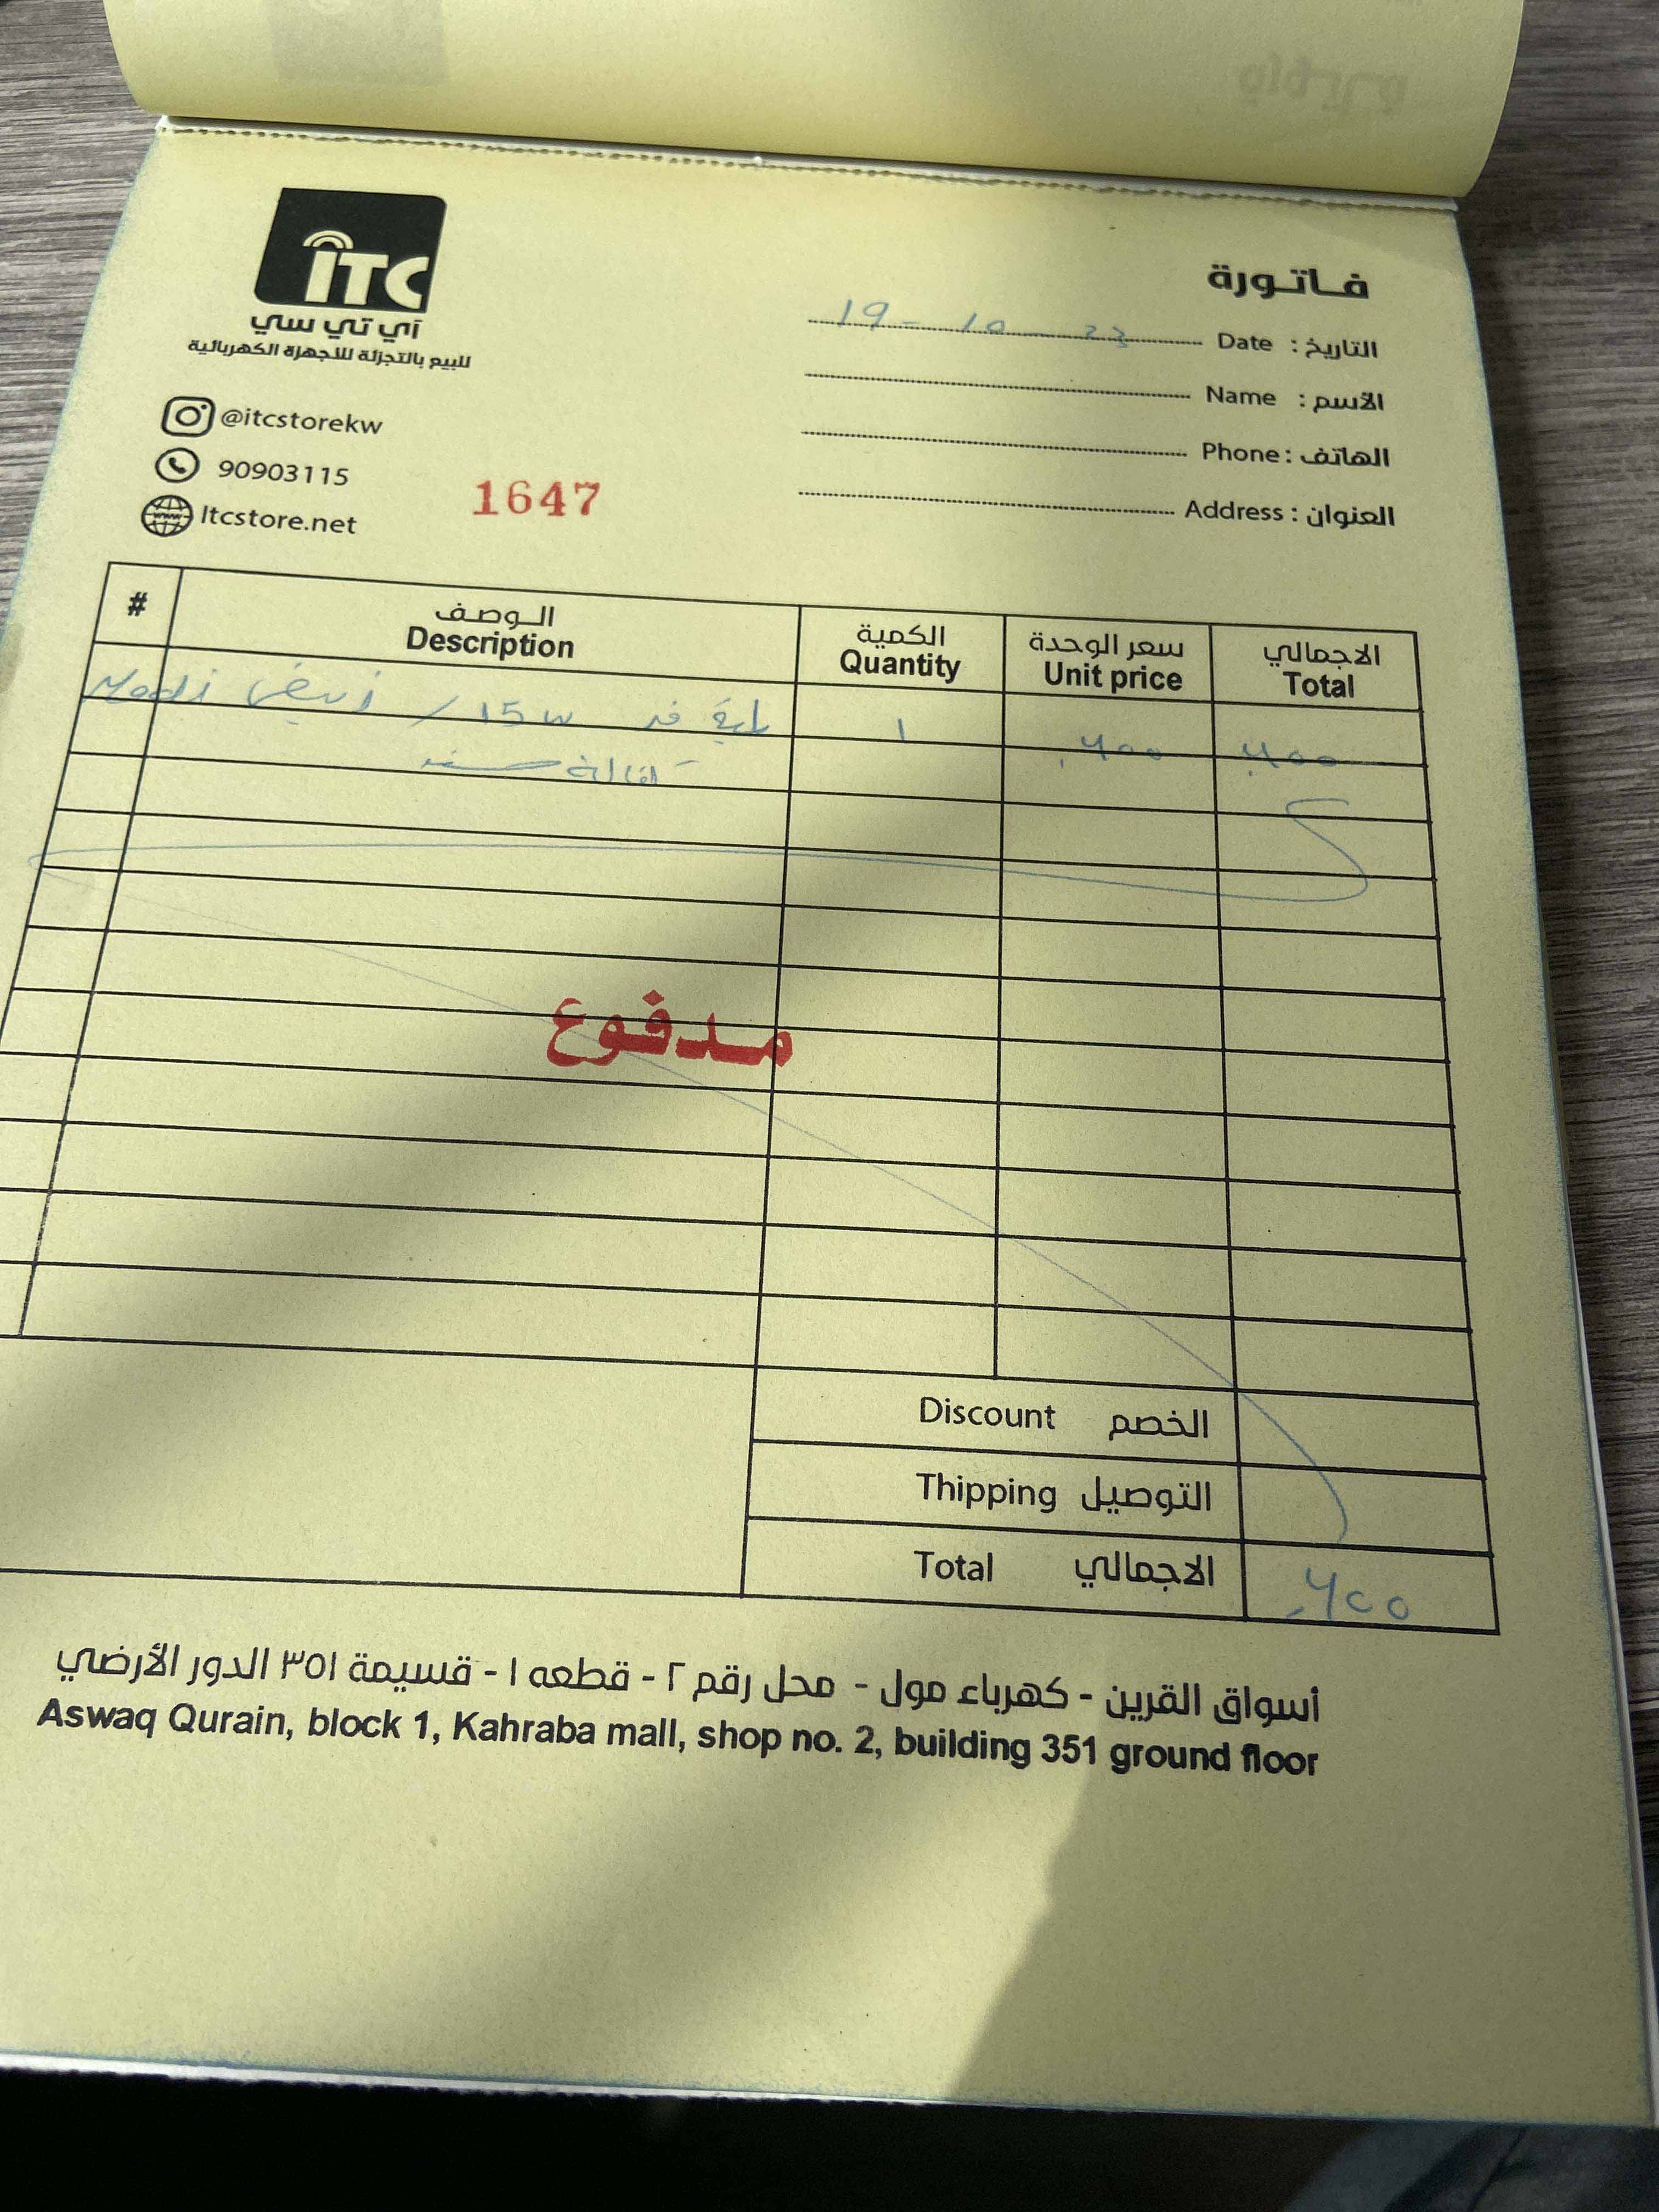 iTC
آي تي سي
للبيع بالتجزئة للأجهزة الكهربائية
@itcstorekw
90903115
Itcstore.net
1647
فاتورة
التاريخ : Date 19 - 10 - 23
الأسم : Name
الهاتف : Phone
العنوان : Address
# الوصف Description الكمية Quantity سعر الوحدة Unit price الاجمالي Total
15w / ابيض 1
كفالة سنة
مدفوع
Discount الخصم
Thipping التوصيل
Total الاجمالي
أسواق القرين - كهرباء مول - محل رقم ٢ - قطعه ١ - قسيمة ٣٥١ الدور الأرضي
Aswaq Qurain, block 1, Kahraba mall, shop no. 2, building 351 ground floor